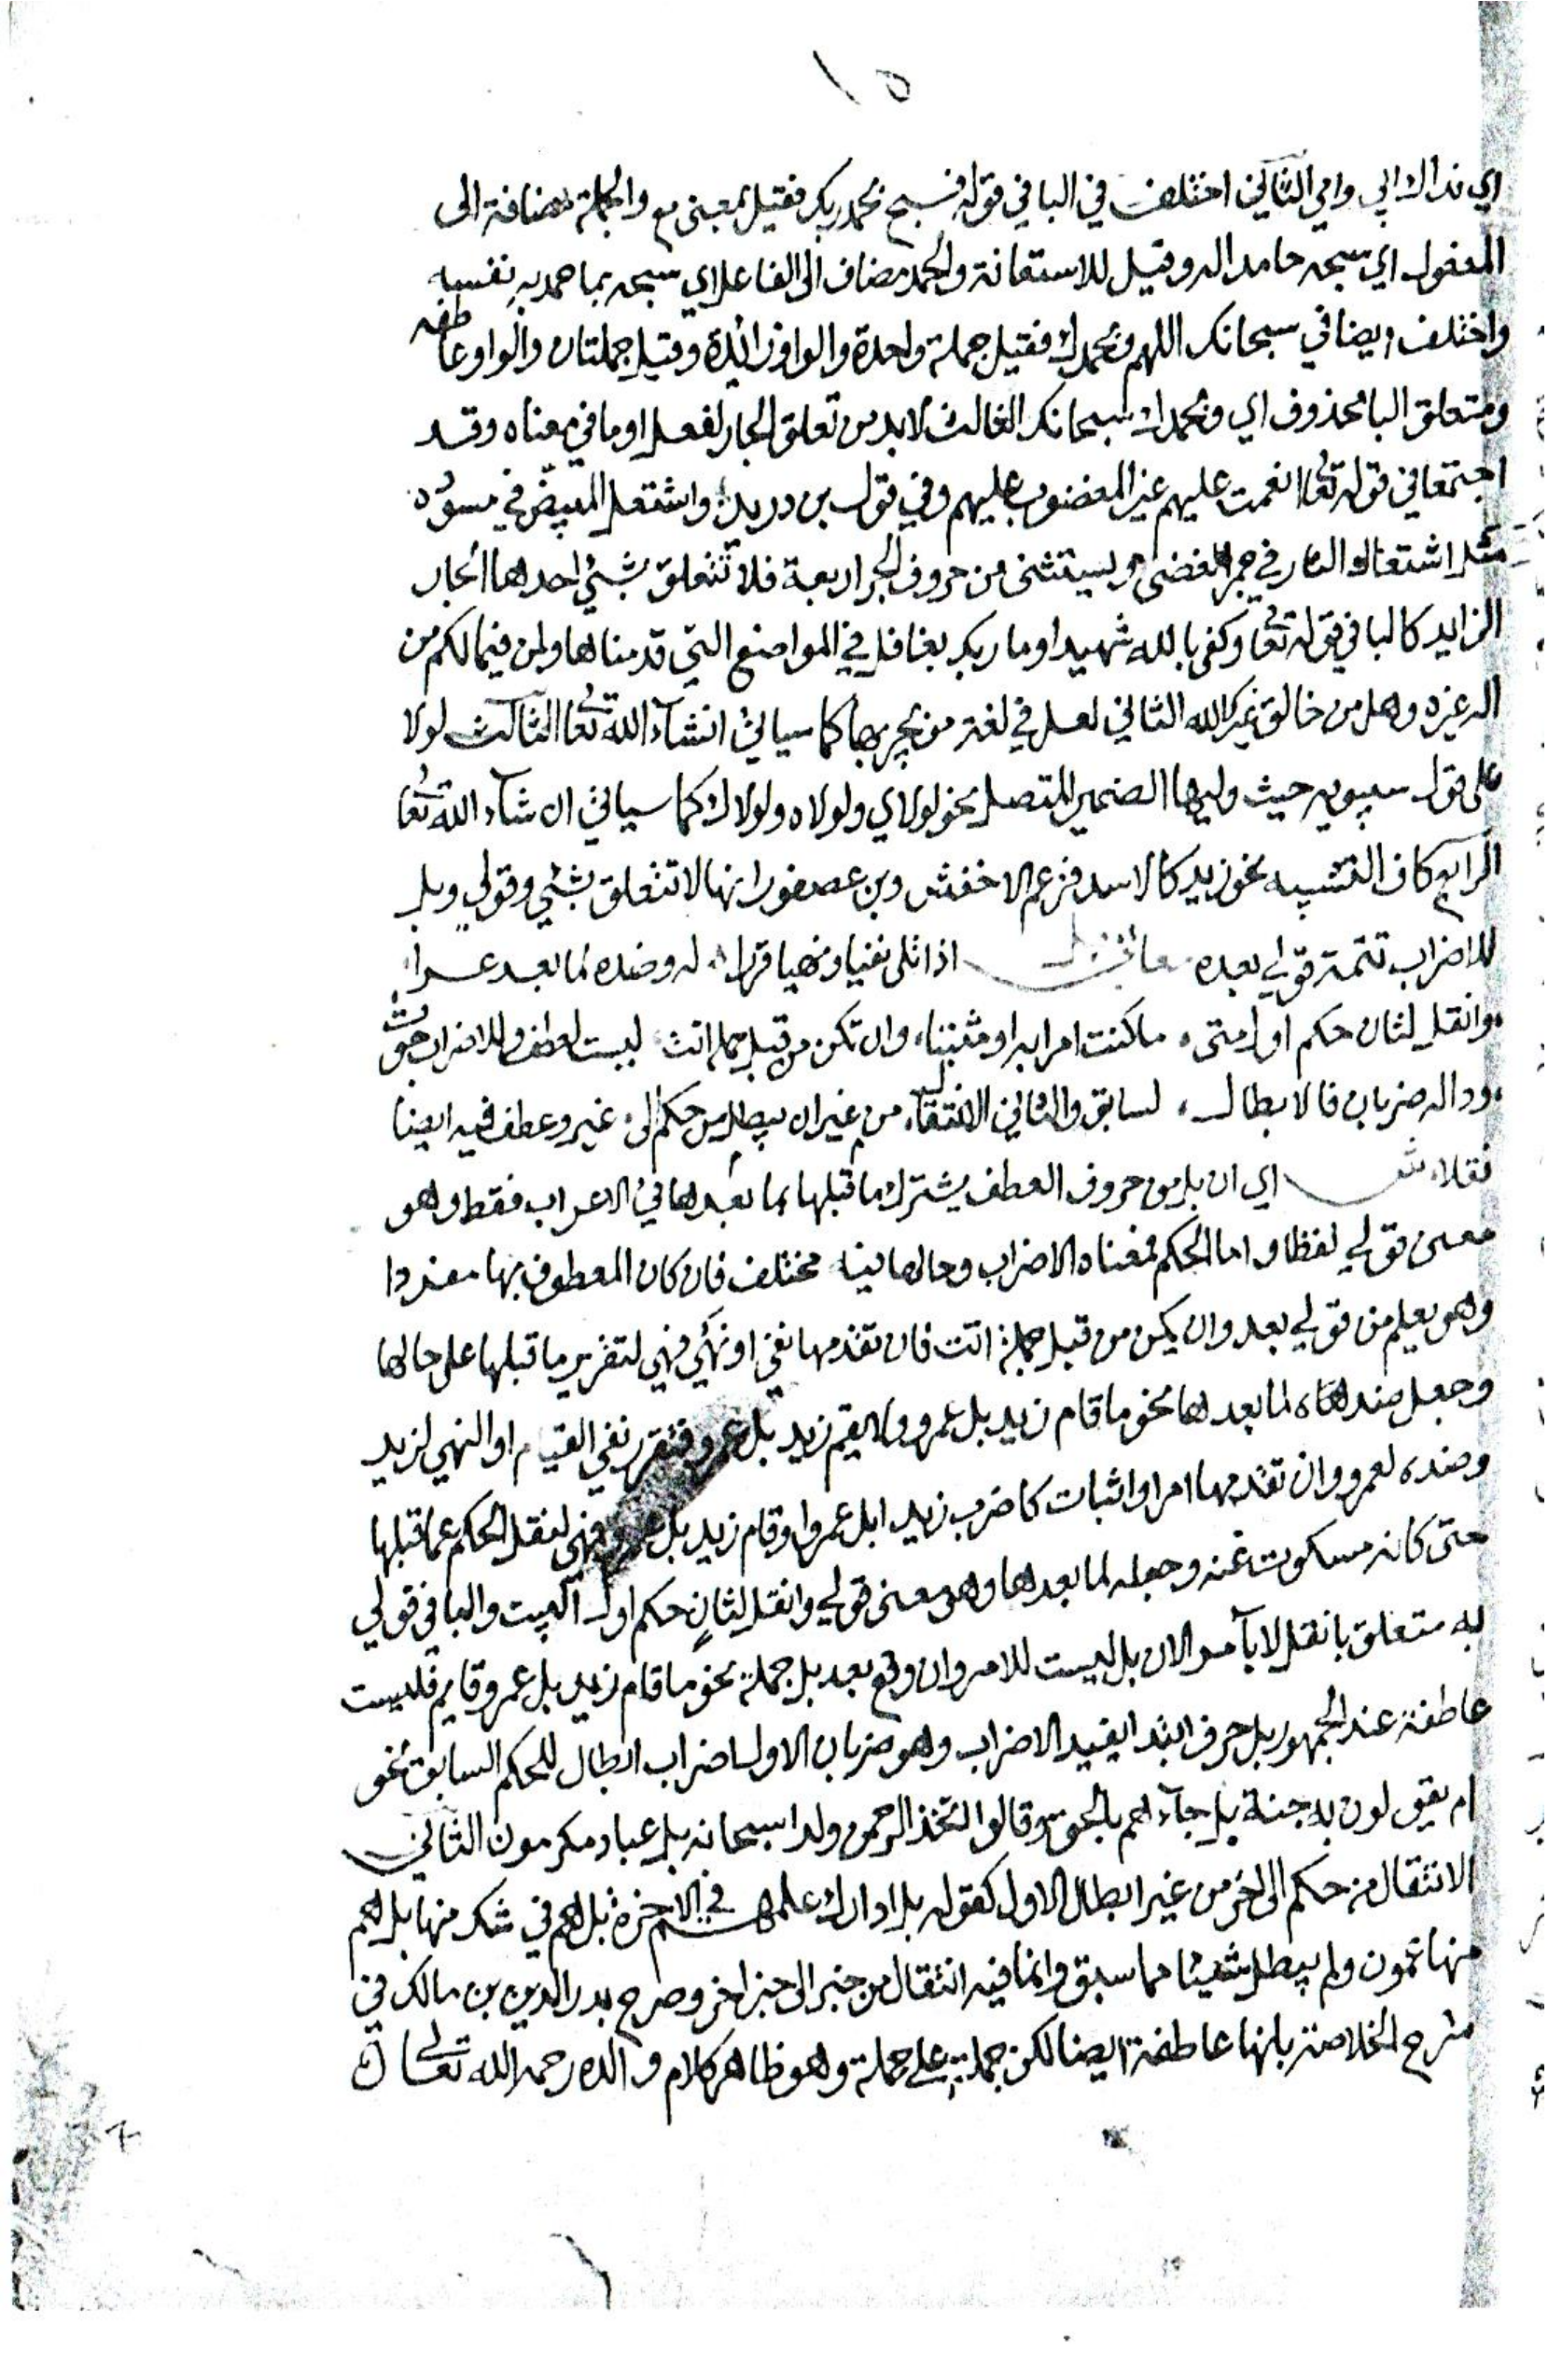 ١٥
اي نداك ابي وامي الثاني اختلف في البا في قوله فسبح بحمد ربك فقيل بمعنى مع والجملة مضافة الى
المفعول اي سبحه حامدا له وقيل للاستعانة والحمد مضاف الى الفاعل اي سبحه بما حمد به نفسه
واختلف ايضا في سبحانك اللهم وبحمدك فقيل جملة واحدة والواو زائدة وقيل جملتان والواو عاطفه
ومتعلق البا محذوف اي وبحمدك سبحانك الثالث لابد من تعلق الجار لفعل او ما في معناه وقد
اجتمعا في قوله تعا انعمت عليهم غير المغضوب عليهم وفي قول بن دريد واشتعل المبيض في مسوده
مثل اشتعال النار في جمر الغضى ويستثنى من حروف الجر اربعة فلا تتعلق بشئ احدها الجار
الزايد كالبا في قوله تعا وكفى بالله شهيدا وما ربك بغافل في المواضع التي قدمناها ومن فيما لكم من
اله غيره وهل من خالق غير الله الثاني لعل في لغة من يجر بها كما سياتي انشآء الله تعا الثالث لولا
على قول سيبويه حيث وليها الضمير المتصل نحو لولاي ولولاه ولولاك كما سياتي ان شآء الله تعا
الرابع كاف التشبيه نحو زيد كالاسد فزعم الاخفش وبن عصفور انها لا تتعلق بشئ وقولي وبل
للاضراب تتمة قولي بعده اذا تلى نفيا ونهيا قررا له وضده لما بعد عرا
وانقل لثان حكم اول متى ما كنت امرا به او مثبتا وان تكن من قبل جملة انت ليست لعطف وللاضراب حوت
وداله ضربان فالابطال لسابق والثاني الانتقال من غير ان يبطل من حكم الى غير وعطف فيه ايضا
نقلا ش اي ان بل من حروف العطف يشترك ما قبلها بما بعدها في الاعراب فقط وهو
معنى قولي لفظا واما الحكم فمعناه الاضراب وحالها فيه مختلف فان كان المعطوف بها مفردا
وهو يعلم من قولي بعد وان يكن من قبل جملة انت فان تقدمها نفي او نهي فهي لتقرير ما قبلها على حالها
وجعل ضدها لما بعدها نحو ما قام زيد بل عمرو ولا يقم زيد بل عمرو فتقرر نفي القيام او النهي لزيد
وضده لعمرو وان تقدمها امر او اثبات كاضرب زيدا بل عمروا وقام زيد بل عمرو فهي لنقل الحكم عما قبلها
حتى كانه مسكوت عنه وجعله لما بعدها وهو معنى قولي وانقل لثان حكم اول البيت والبا في قولي
به متعلق بانقل لا بآمر الان بل ليست للامر وان وقع بعد بل جملة نحو ما قام زيد بل عمرو قايم فليست
عاطفة عند الجمهور بل حرف ابتدا يفيد الاضراب وهو ضربان الاول اضراب ابطال للحكم السابق نحو
ام يقولون به جنة بل جآءهم بالحق وقالوا اتخذ الرحمن ولدا سبحانه بل عباد مكرمون الثاني
الانتقال من حكم الى اخر من غير ابطال الاول كقوله بل ادارك علمهم في الاخرة بل هم في شك منها بل هم
منها عمون ولم يبطل شيئا مما سبق وانما فيه انتقال من خبر الى خبر اخر وصرح بدر الدين بن مالك في
شرح الخلاصة بانها عاطفة ايضا لكن جملة على جملة وهو ظاهر كلام والده رحمه الله تعالى